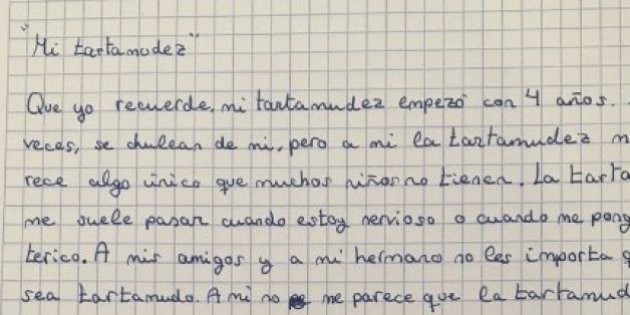 "Mi tartamudez"
Que yo recuerde, mi tartamudez empezó con 4 años.
veces, se chulean de mi, pero a mi la tartamudez m
rece algo único que muchos niños no tienen. La tarta
me suele pasar cuando estoy nervioso o cuando me pong
terico. A mis amigos y a mi hermano no les importa q
sea tartamudo. A mi no me parece que la tartamud